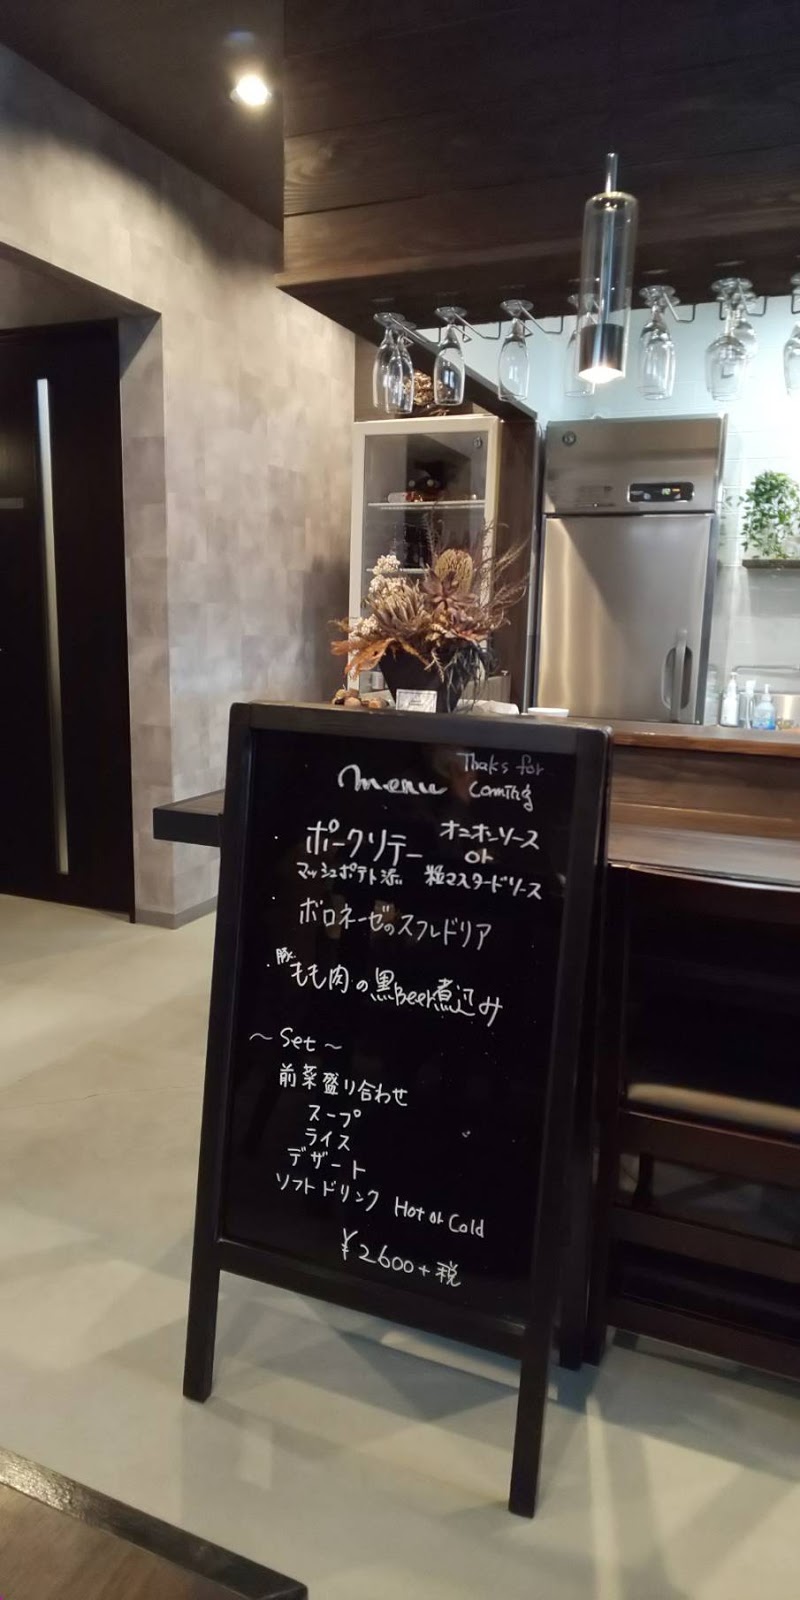 menu
Thaks for
coming
・ポークソテー オニオンソース
or
マッシュポテト添 粒マスタードソース
・ボロネーゼのスフレドリア
・豚もも肉の黒Beer煮込み
～ Set ～
前菜盛り合わせ
スープ
ライス
デザート
ソフトドリンク Hot or Cold
¥2600+税